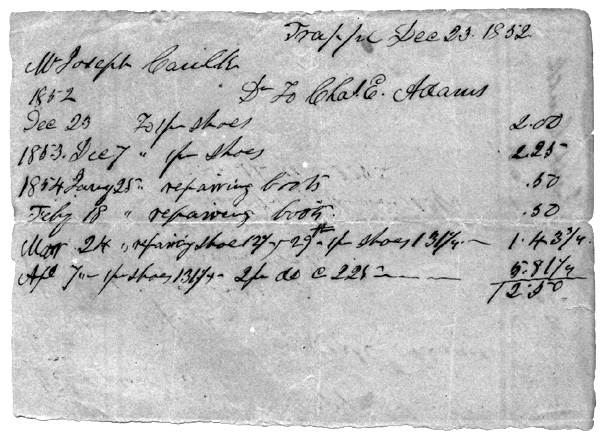 Trappe Dec 23. 1852
Mr Joseph Caulk
1852 Dr To Chas. E. Adams
Dec 23 To 1 pr shoes 2.00
1853. Dec 7 " 1 pr shoes 2.25
1854 Jany 25 " repairing boots .50
Feby 18 " repairing boots .50
Mar 24 " repairing shoe 12½ 29th " 1 pr shoes 131¼ 1.43¾
Apl 7 " 1 pr shoes 131¼ 2 pr do @ 225 5.81¼
12.50